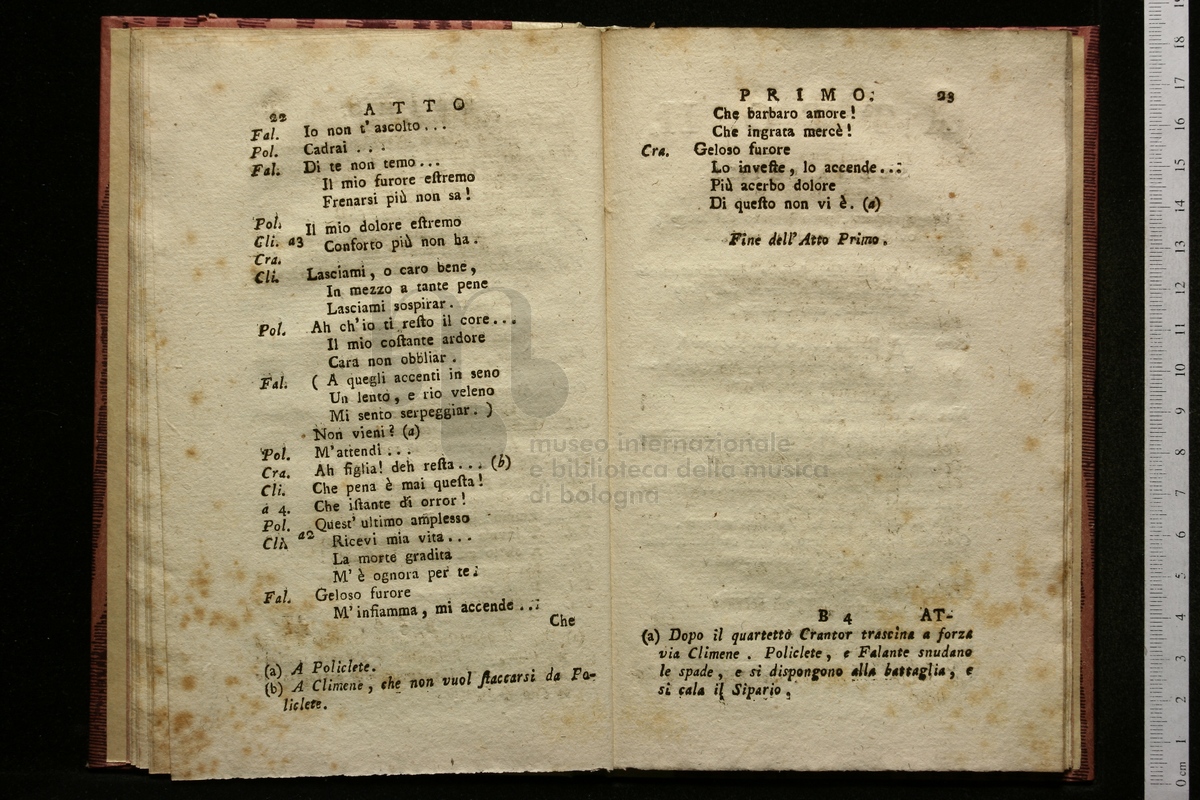 22 ATTO
Fal. Io non t' ascolto...
Pol. Cadrai...
Fal. Di te non temo...
Il mio furore estremo
Frenarsi più non sa!
Pol. Il mio dolore estremo
Cli. a3 Conforto più non ha.
Cra.
Cli. Lasciami, o caro bene,
In mezzo a tante pene
Lasciami sospirar.
Pol. Ah ch'io ti resto il core...
Il mio costante ardore
Cara non obbliar.
Fal. (A quegli accenti in seno
Un lento, e rio veleno
Mi sento serpeggiar.)
Non vieni? (a)
Pol. M'attendi...
Cra. Ah figlia! deh resta... (b)
Cli. Che pena è mai questa!
a 4. Che istante di orror!
Pol. Quest' ultimo amplesso
Cli. a2 Ricevi mia vita...
La morte gradita
M' è ognora per te.
Fal. Geloso furore
M' infiamma, mi accende...
Che
(a) A Policlete.
(b) A Climene, che non vuol staccarsi da Po-
liclete.
PRIMO. 23
Che barbaro amore!
Che ingrata mercè!
Cra. Geloso furore
Lo investe, lo accende...
Più acerbo dolore
Di questo non vi è. (a)
Fine dell'Atto Primo.
B 4 AT-
(a) Dopo il quartetto Crantor trascina a forza
via Climene. Policlete, e Falante snudano
le spade, e si dispongono alla battaglia, e
si cala il Sipario.
museo internazionale
e biblioteca della musica
di bologna
0 cm 1 2 3 4 5 6 7 8 9 10 11 12 13 14 15 16 17 18 19